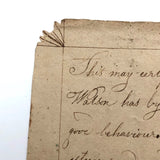 This may cer
Watson has by
good behaviour